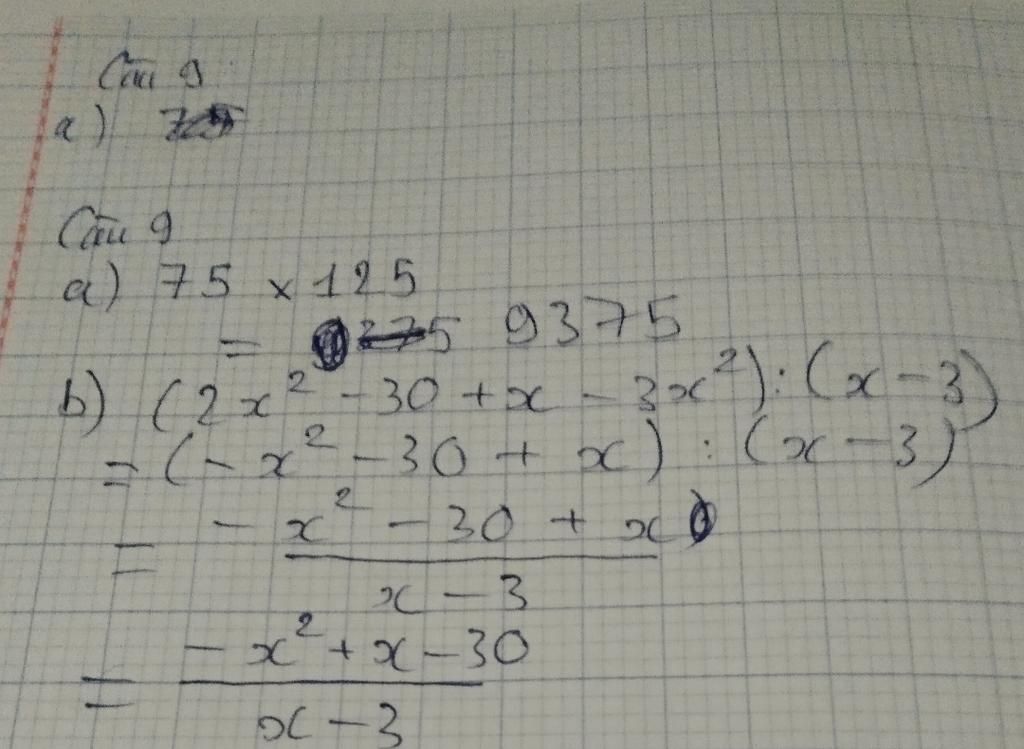 Câu 9
a)
Câu 9
a) 75 × 125
= 9375
b) (2x² - 30 + x - 3x²) : (x - 3)
= (- x² - 30 + x) : (x - 3)
= - x² - 30 + x / x - 3
= - x² + x - 30 / x - 3